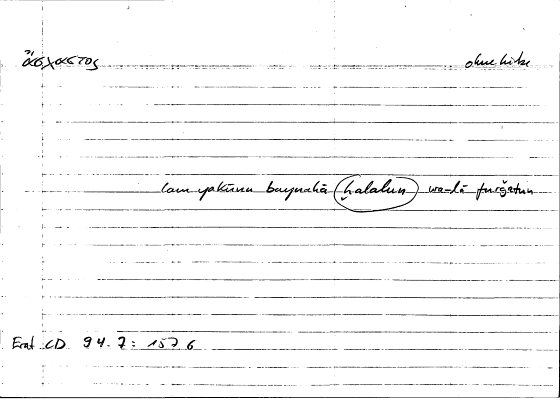 ἄσχαστος ohne Lücke
lam yakūnu baynahā ḫalalun wa-lā furǧatun
Erat CD 94.7: 157 6